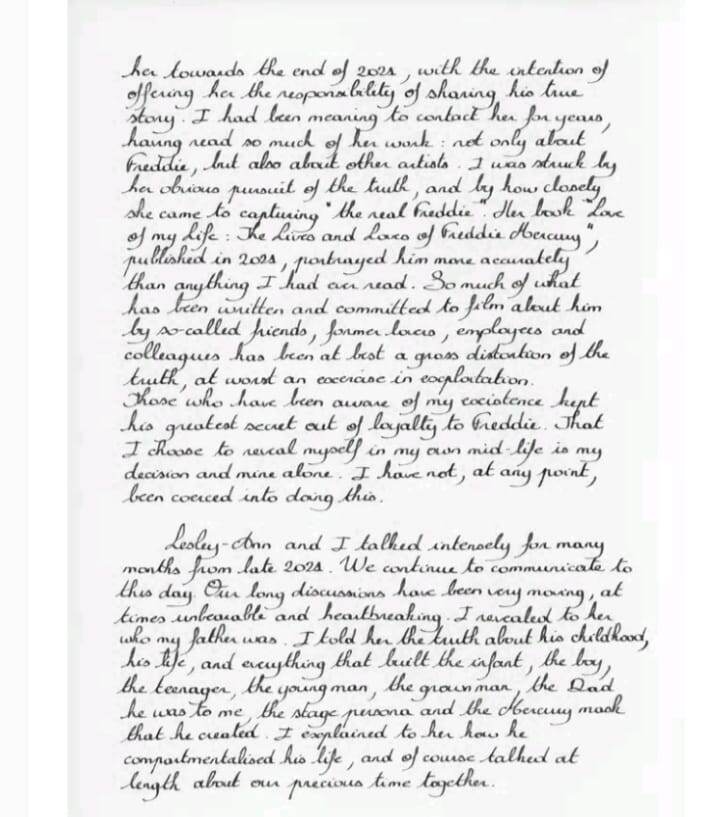 her towards the end of 2021, with the intention of
offering her the responsibility of sharing his true
story. I had been meaning to contact her for years,
having read so much of her work: not only about
Freddie, but also about other artists. I was struck by
her obvious pursuit of the truth, and by how closely
she came to capturing "the real Freddie". Her book "Love
of my Life: The Lives and Loves of Freddie Mercury",
published in 2021, portrayed him more accurately
than anything I had ever read. So much of what
has been written and committed to film about him
by so-called friends, former lovers, employees and
colleagues has been at best a gross distortion of the
truth, at worst an exercise in exploitation.
Those who have been aware of my existence kept
his greatest secret out of loyalty to Freddie. That
I choose to reveal myself in my own mid-life is my
decision and mine alone. I have not, at any point,
been coerced into doing this.
Lesley-Ann and I talked intensely for many
months from late 2021. We continue to communicate to
this day. Our long discussions have been very moving, at
times unbearable and heartbreaking. I revealed to her
who my father was. I told her the truth about his childhood,
his life, and everything that built the infant, the boy,
the teenager, the young man, the grown man, the Dad
he was to me, the stage persona and the Mercury mask
that he created. I explained to her how he
compartmentalised his life, and of course talked at
length about our precious time together.